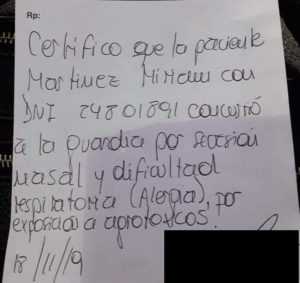 Rp:
Certifico que la paciente
Martinez Miriam con
DNI 24801891 concurrió
a la guardia por secresión
nasal y dificultad
respiratoria (Alergia), por
exposición a agrotoxicos.
18/11/19